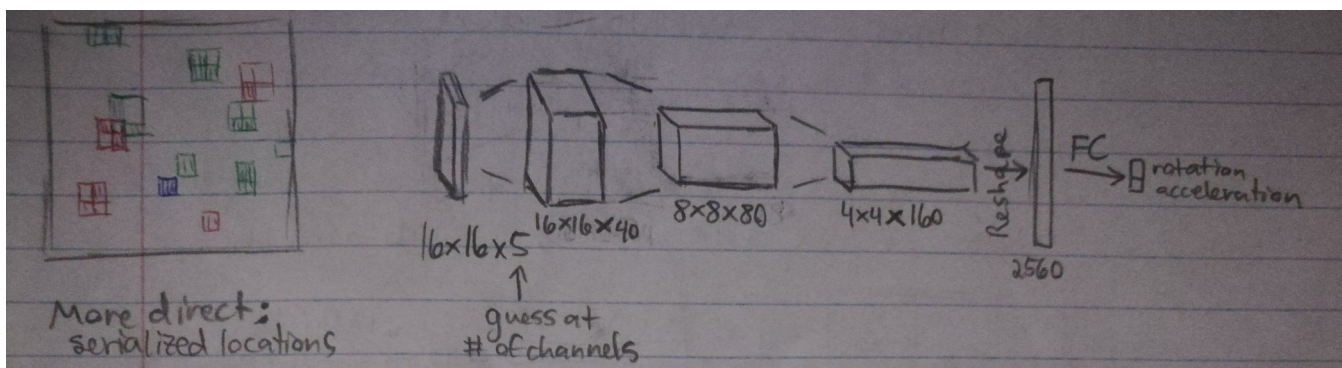 More direct:
serialized locations
16x16x5
guess at
# of channels
16x16x40
8x8x80
4x4x160
Reshape
2560
FC
rotation
acceleration